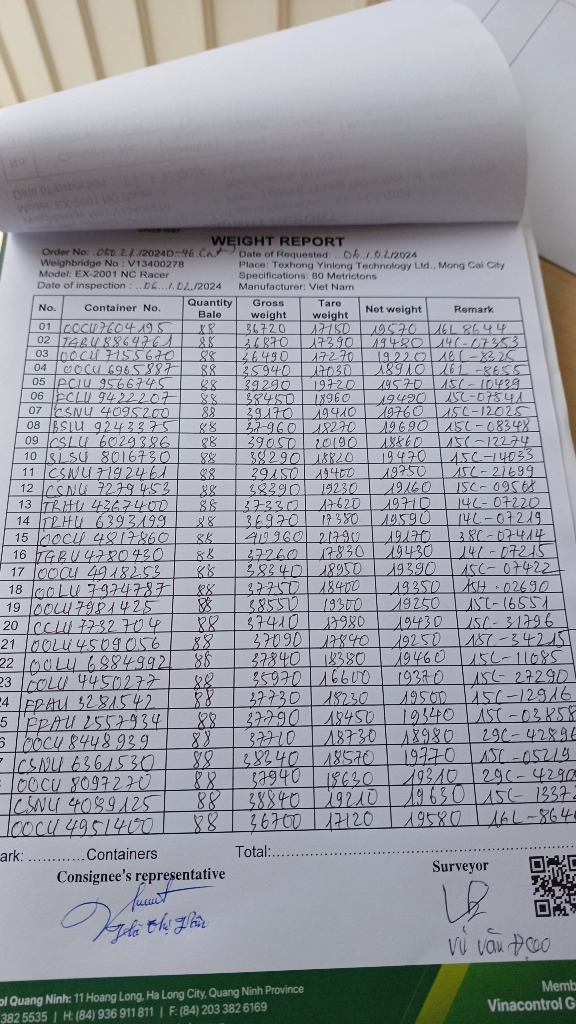 WEIGHT REPORT
Order No: /2024D-46 Cont Date of Requested: 06/02/2024
Weighbridge No : V13400278 Place: Texhong Yinlong Technology Ltd., Mong Cai City
Model: EX-2001 NC Racer Specifications: 80 Metrictons
Date of inspection : 06/02/2024 Manufacturer: Viet Nam
No. Container No. Quantity Bale Gross weight Tare weight Net weight Remark
01 OOCU7604195 88 36720 17150 19570 16L 8644
02 TGBU8864761 88 36870 17390 19480 14C-07353
03 OOCU 7155670 88 36490 17270 19220 16L-8325
04 OOCU 6965887 88 35940 17030 18910 16L-8655
05 FCIU 9566745 88 39290 19720 19570 15C-10439
06 FCIU 9422207 88 38450 18960 19490 15C-07541
07 CSNU 4095200 88 39170 19410 19760 15C-12025
08 BSIU 9243375 88 37960 18270 19690 15C-08348
09 CSLU 6029386 88 39050 20190 18860 15C-12274
10 SLSU 8016730 88 38290 18820 19470 15C-14033
11 CSNU7192461 88 39150 19400 19750 15C-21699
12 CSNU 7279453 88 38390 19230 19160 15C-09568
13 TRHU 4367400 88 37330 17620 19710 14C-07220
14 TRHU 6393199 88 36970 17380 19590 14C-07219
15 OOCU 4817860 88 40960 21790 19170 38C-07414
16 TGBU 4780430 88 37260 17830 19430 14C-07215
17 OOCU 4918253 88 38340 18950 19390 15C-07422
18 OOLU 7974787 88 37750 18400 19350 15H-02690
19 OOLU7981425 88 38550 19300 19250 15C-16551
20 CCLU 7732704 88 37410 17980 19430 15C-31796
21 OOLU4509056 88 37090 17840 19250 15C-34215
22 OOLU 6984992 88 37840 18380 19460 15C-11085
23 OOLU 4450277 88 35970 16600 19370 15C-27290
24 FPAU 3281542 88 37730 18230 19500 15C-12916
5 FPAU 2557934 88 37790 18450 19340 15C-03858
6 OOCU8448939 88 37710 18730 18980 29C-42896
CSNU6361530 88 38340 18570 19770 15C-05219
OOCU 8097270 88 37940 18630 19310 29C-4290
CSNU 4039125 88 38840 19210 19630 15C-1337
OOCU 4951400 88 36700 17120 19580 16L-864
ark: ............Containers Total:
Consignee's representative Surveyor
Vũ Văn Đạo
ol Quang Ninh: 11 Hoang Long, Ha Long City, Quang Ninh Province Memb
382 5535 | H: (84) 936 911 811 | F: (84) 203 382 6169 Vinacontrol G